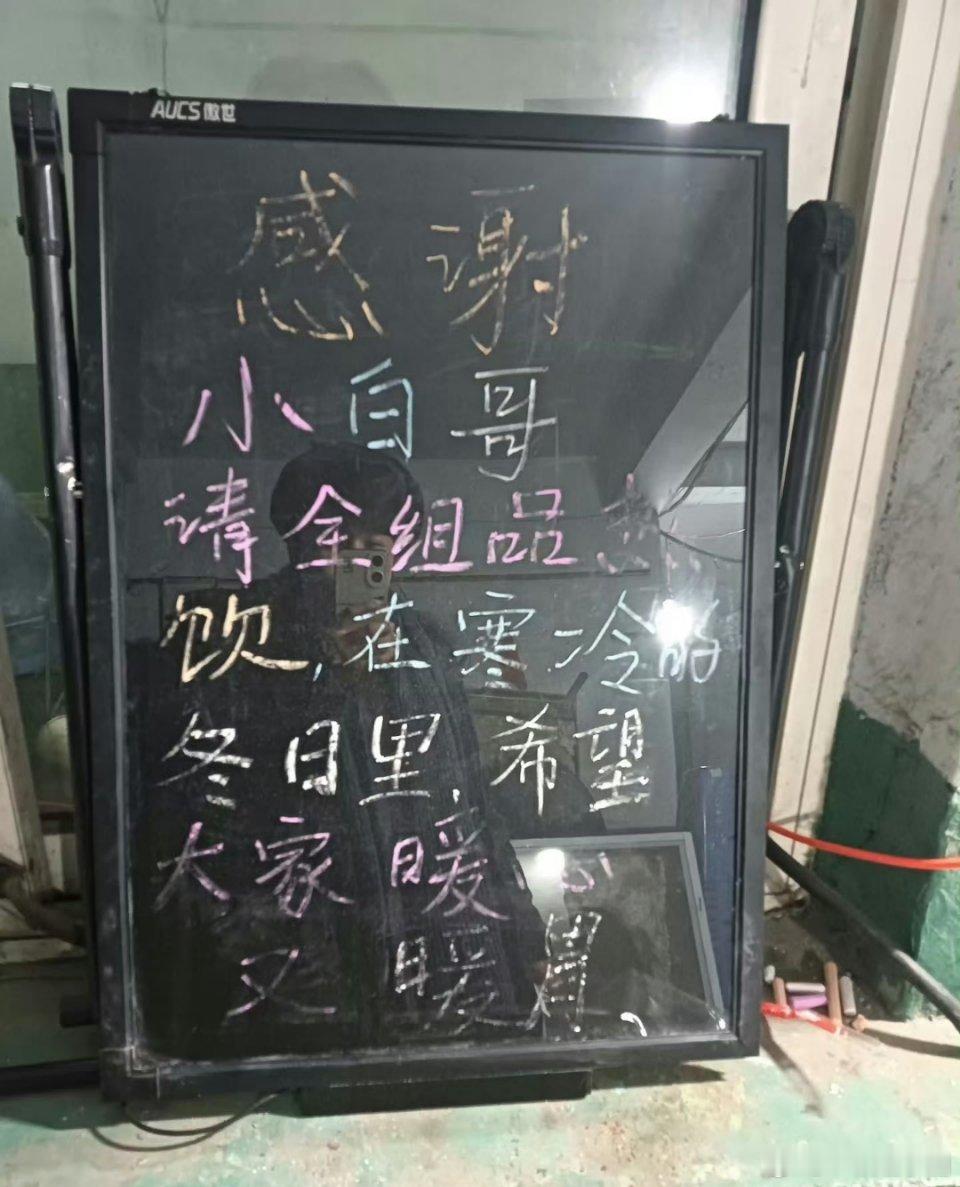 AUCS 傲世
感谢
小白哥
请全组品热
饮,在寒冷的
冬日里,希望
大家暖心
又暖胃。